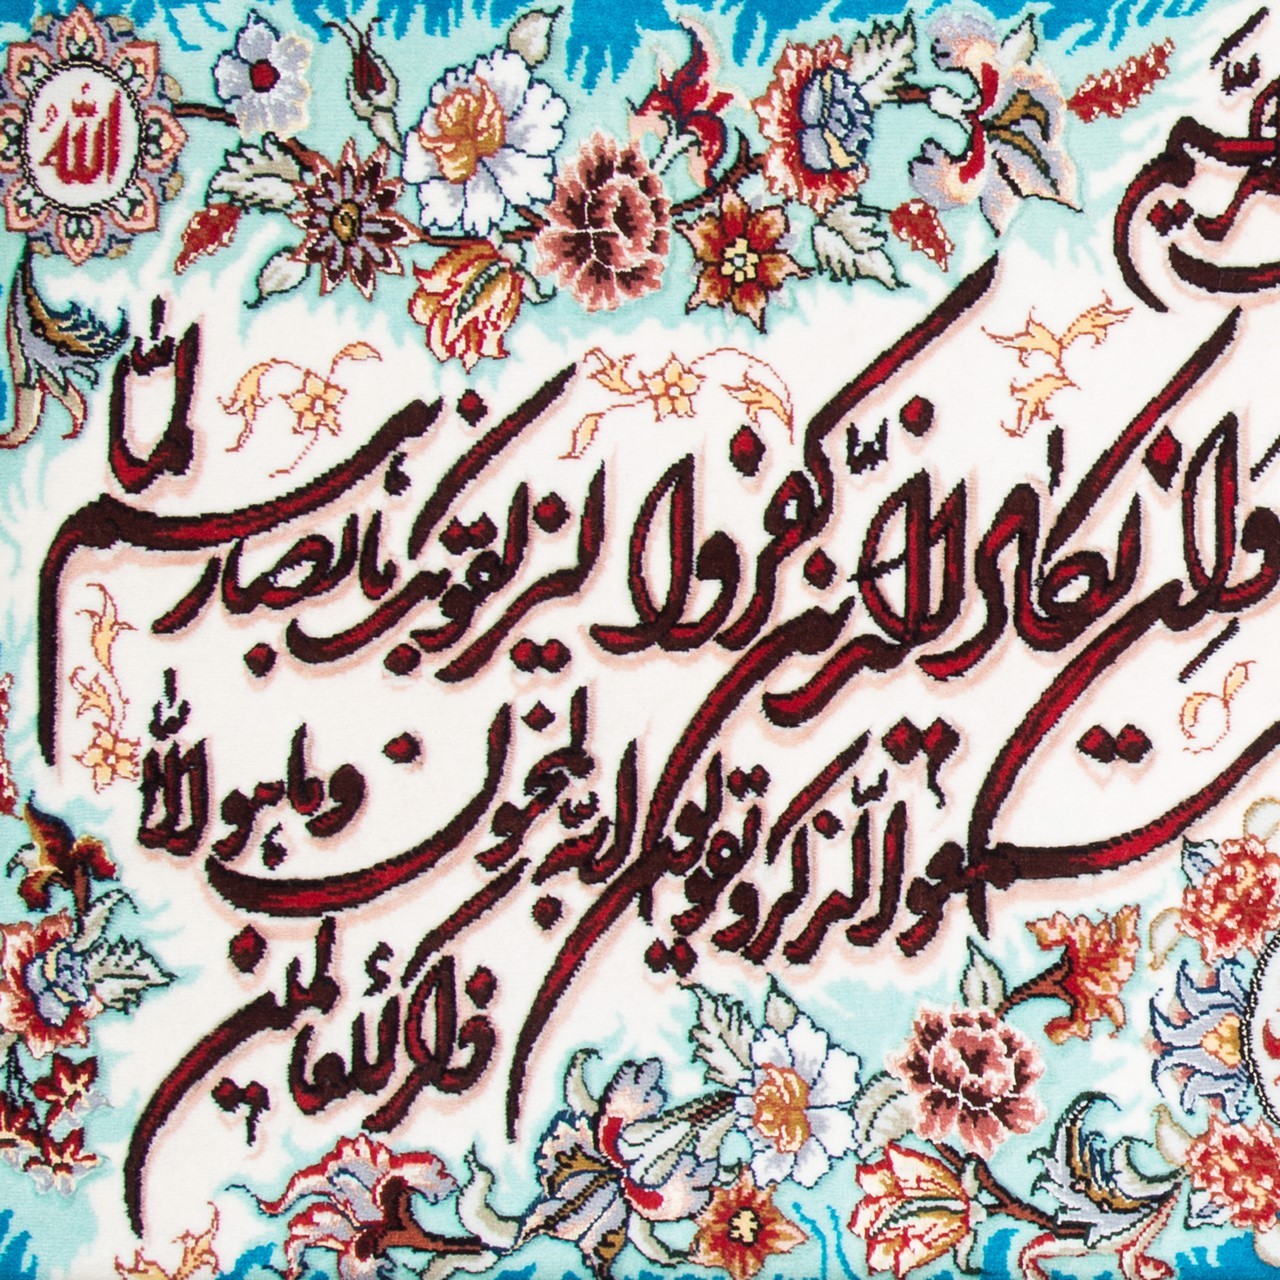 الله
وان يكاد الذين كفروا ليزلقونك بابصارهم لما
سمعوا الذكر ويقولون انه لمجنون وما هو الا
ذكر للعالمين